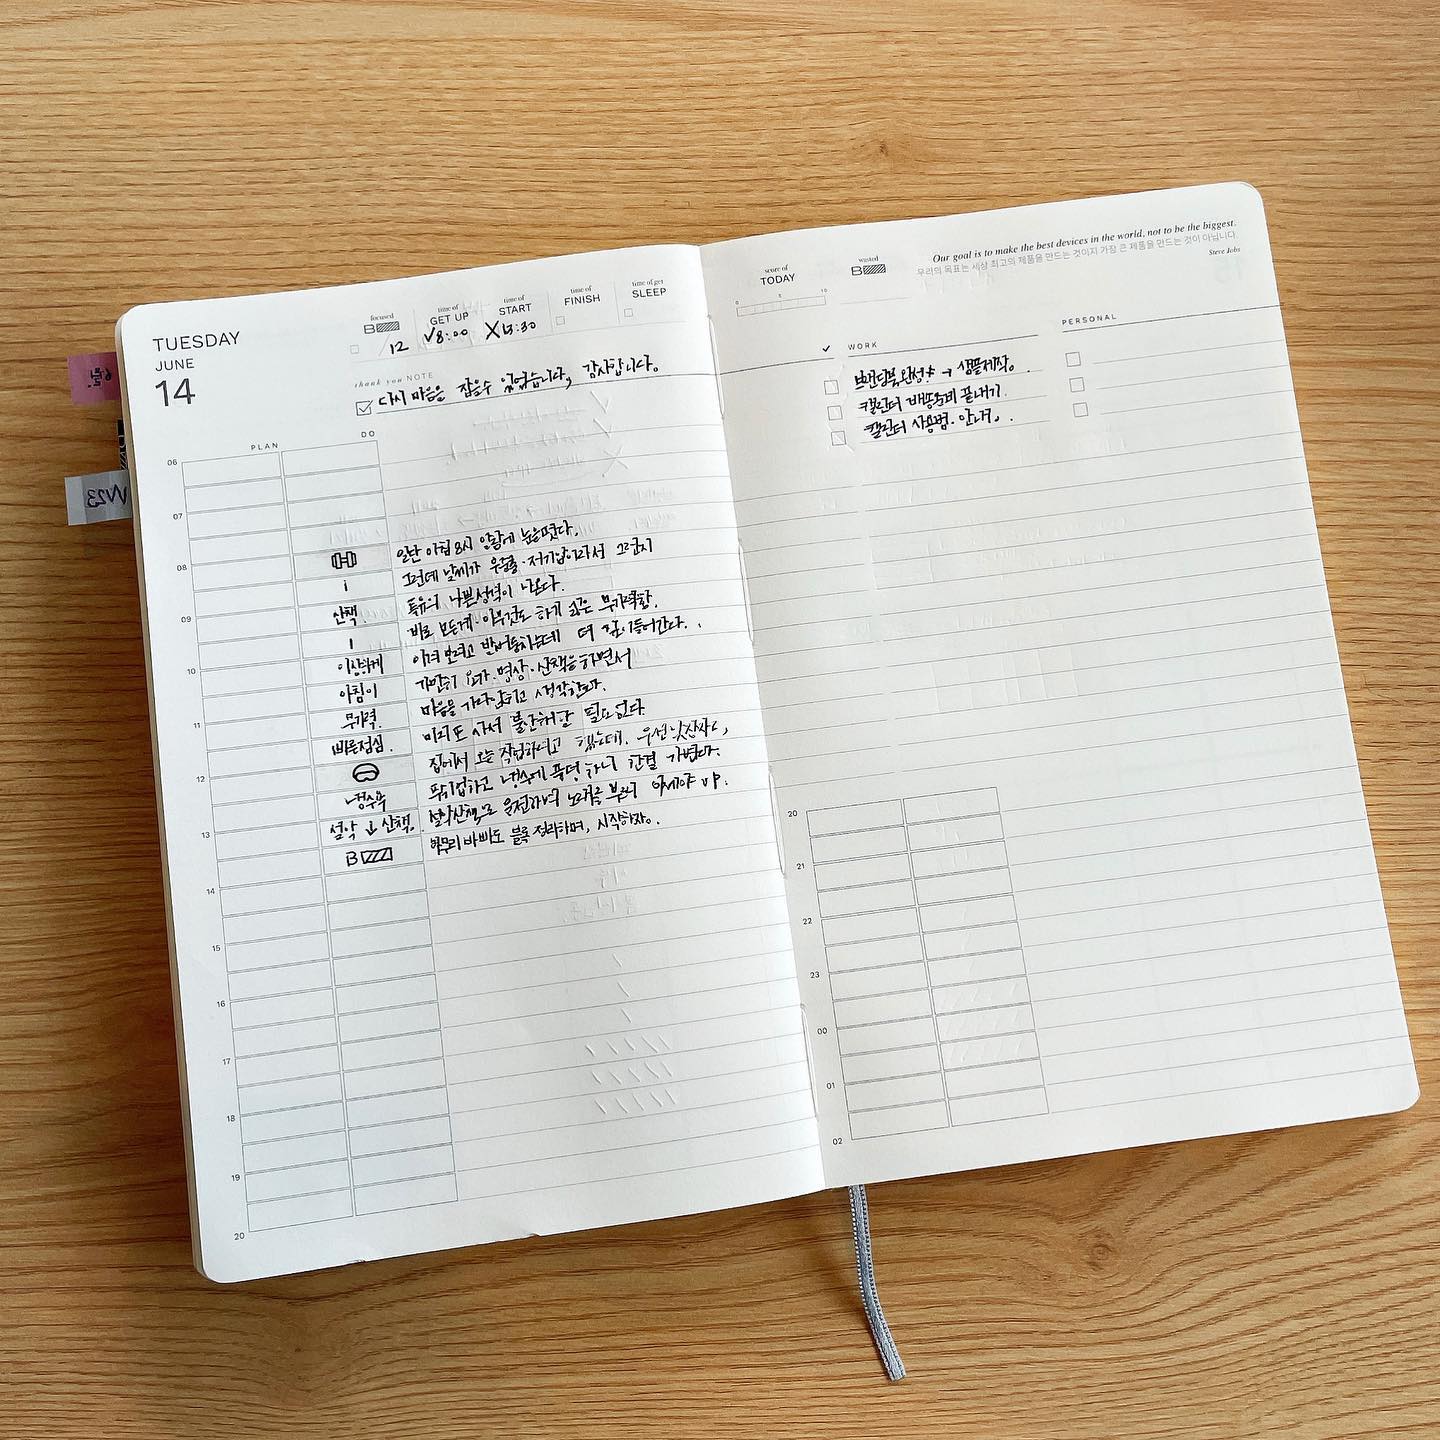 TUESDAY
JUNE
14
focused
B
12
time of
GET UP
✓8:00
time of
START
X13:30
time of
FINISH
time of get
SLEEP
thank you NOTE
다시 마음을 잡을수 있었습니다, 감사합니다.
PLAN
DO
06
07
08
09
10
11
12
13
14
15
16
17
18
19
20
산책
이상하게
아침이
무기력.
빠른점심.
냉수욕
설악 산책.
B
일단 아침 8시 눈을떴다.
그런데 날씨가 우중충·저기압이라서 그런지
특유의 나쁜성격이 나온다.
바로 모든게·아무것도 하기 싫은 무기력함.
발버둥하는데 더 들어간다.
가만히 요가·명상·산책을하면서
마음을 가라앉히고 생각한다.
미리 불안해할 필요없다
집에서 오늘 작업하려고 했는데, 우선
냉수에 풍덩 하니 한결 가볍다.
운전하며 노래를 이제야
바빠도 블록 정리하며, 시작하자.
score of
TODAY
0
5
10
wasted
B
Our goal is to make the best devices in the world, not to be the biggest.
우리의 목표는 세상 최고의 제품을 만드는 것이지 가장 큰 제품을 만드는 것이 아닙니다.
Steve Jobs
✓
WORK
PERSONAL
브랜딩북완성! → 샘플제작.
캘린더 배송준비 끝내기.
캘린더 사용법. 안내.
20
21
22
23
00
01
02
6월.
W23